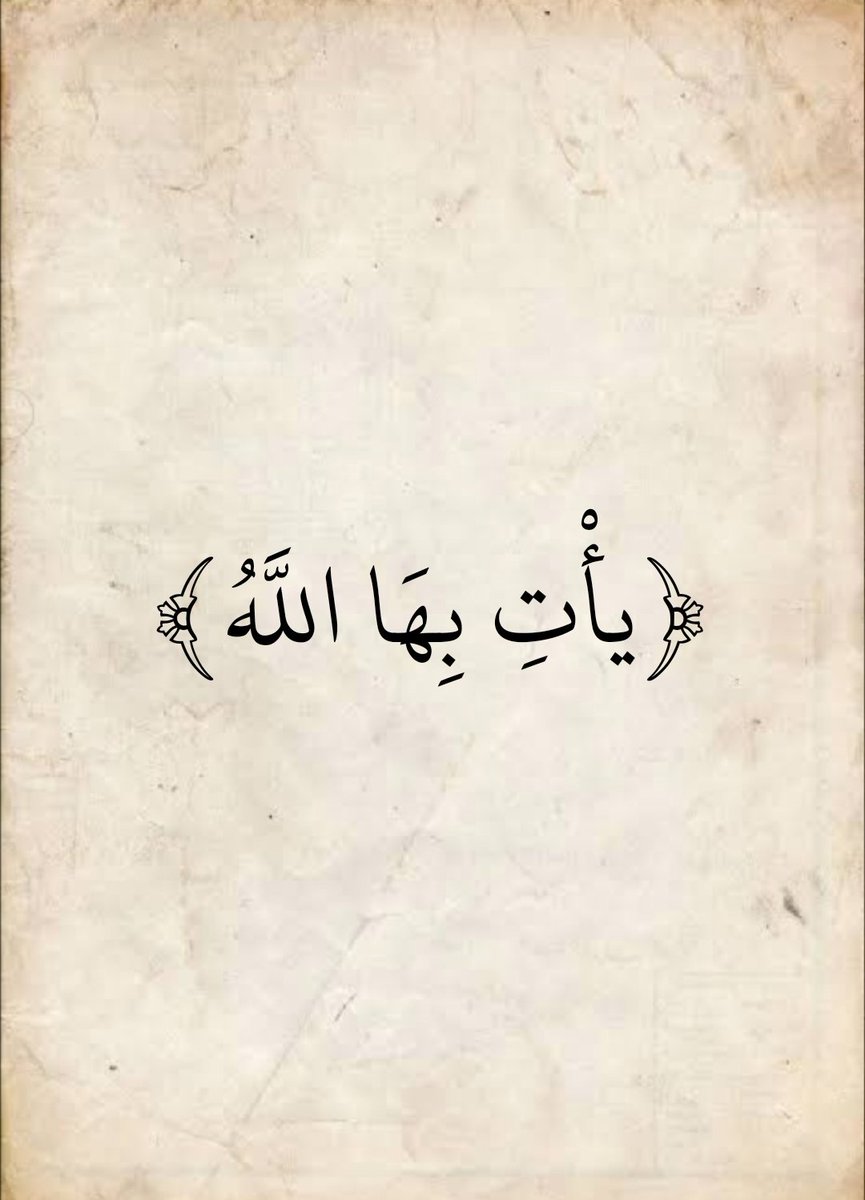 ﴿يأْتِ بِهَا اللَّهُ﴾